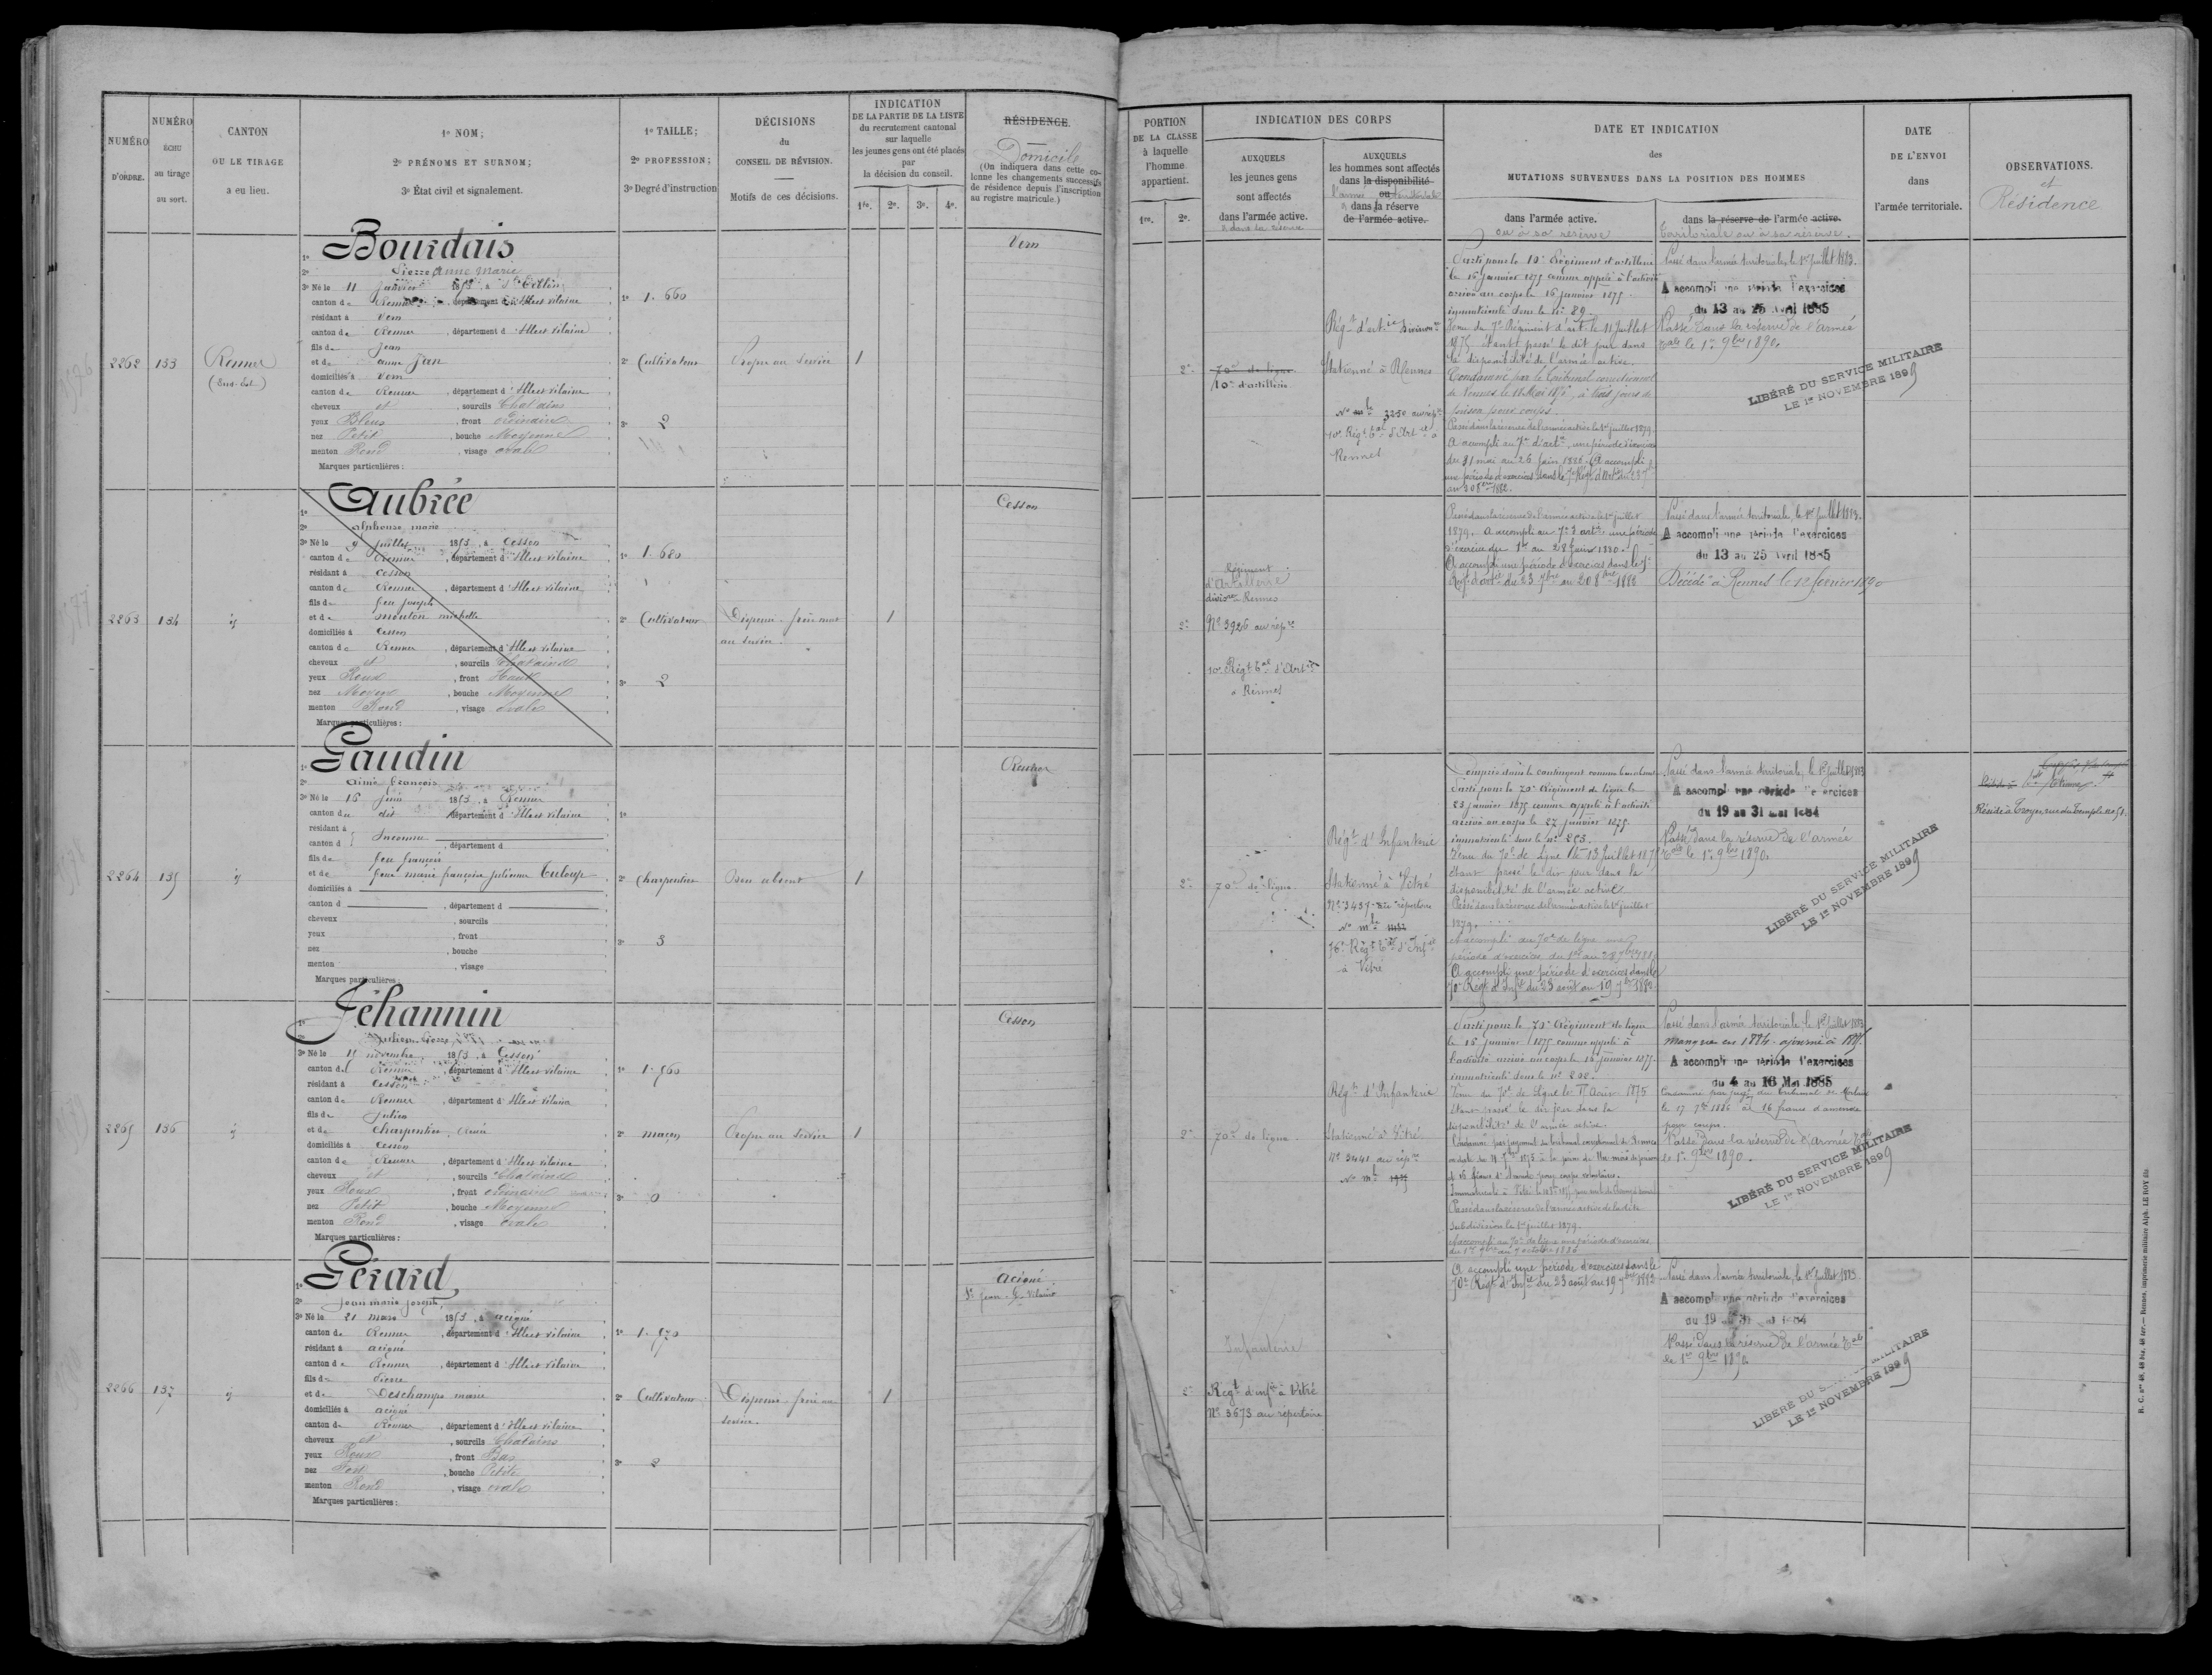 NUMÉRO
D'ORDRE.
NUMÉRO
ÉCHU
au tirage
au sort.
CANTON
OU LE TIRAGE
a eu lieu.
1º NOM;
2º PRÉNOMS ET SURNOM;
3º État civil et signalement.
1º TAILLE;
2º PROFESSION;
3º Degré d'instruction
DÉCISIONS
du
CONSEIL DE RÉVISION.
Motifs de ces décisions.
INDICATION
DE LA PARTIE DE LA LISTE
du recrutement cantonal
sur laquelle
les jeunes gens ont été placés
par
la décision du conseil.
1re. 2e. 3e. 4e.
RÉSIDENCE.
Domicile
(On indiquera dans cette co-
lonne les changements successifs
de résidence depuis l'inscription
au registre matricule.)
2262
133
Rennes
(Sud-Est)
Bourdais
Pierre Anne Marie
3º Né le 11 Janvier 1853, à
canton de Rennes, département d'Ille et Vilaine
résidant à Vern
canton de Rennes, département d'Ille et Vilaine
fils de Jean
et de Anne Jan
domiciliés à Vern
canton de Rennes, département d'Ille et Vilaine
cheveux et, sourcils Chatains
yeux Bleus, front ordinaire
nez Petit, bouche Moyenne
menton Rond, visage ovale
Marques particulières:
1º 1.660
2º Cultivateur
3º 2
Propre au service
1
Vern
2263
134
id
Aubrée
Alphonse Marie
3º Né le 9 Juillet 1853, à Cesson
canton de Rennes, département d'Ille et Vilaine
résidant à Cesson
canton de Rennes, département d'Ille et Vilaine
fils de feu Joseph
et de Mouton Michelle
domiciliés à Cesson
canton de Rennes, département d'Ille et Vilaine
cheveux et, sourcils Chatains
yeux Roux, front Haut
nez Moyen, bouche Moyenne
menton Rond, visage ovale
Marques particulières:
1º 1.680
2º Cultivateur
3º 2
Dispensé frère mort
au service.
1
Cesson
2264
135
id
Gaudin
Aimé François
3º Né le 16 Juin 1853, à Rennes
canton du dit, département d'Ille et Vilaine
résidant à
canton d Inconnu, département d
fils de feu François
et de feue Marie Françoise Julienne Tuloup
domiciliés à
canton d, département d
cheveux, sourcils
yeux, front
nez, bouche
menton, visage
Marques particulières:
1º
2º Charpentier
3º 3
Bon absent
1
Rennes
2265
136
id
Jéhannin
3º Né le 15 novembre 1853, à Cesson
canton de Rennes, département d'Ille et Vilaine
résidant à Cesson
canton de Rennes, département d'Ille et Vilaine
fils de Julien
et de Charpentier, Renée
domiciliés à Cesson
canton de Rennes, département d'Ille et Vilaine
cheveux et, sourcils Chatains
yeux Roux, front ordinaire
nez Petit, bouche Moyenne
menton Rond, visage ovale
Marques particulières:
1º 1.560
2º Maçon
3º 0
Propre au service
1
Cesson
2266
137
id
Gérard
Jean Marie Joseph
3º Né le 21 mars 1853, à Acigné
canton de Rennes, département d'Ille et Vilaine
résidant à Acigné
canton de Rennes, département d'Ille et Vilaine
fils de Pierre
et de Deschamps Marie
domiciliés à Acigné
canton de Rennes, département d'Ille et Vilaine
cheveux et, sourcils Chatains
yeux Roux, front Bas
nez Fort, bouche Petite
menton Rond, visage ovale
Marques particulières:
1º 1.570
2º Cultivateur
3º 2
Dispensé frère au
service.
1
Acigné
St Jean s/ Vilaine
PORTION
DE LA CLASSE
à laquelle
l'homme
appartient.
1re. 2e.
INDICATION DES CORPS
AUXQUELS
les jeunes gens
sont affectés
dans l'armée active.
& dans sa réserve
AUXQUELS
les hommes sont affectés
dans la disponibilité
ou
l'armée territoriale
& dans la réserve
de l'armée active.
DATE ET INDICATION
des
MUTATIONS SURVENUES DANS LA POSITION DES HOMMES
dans l'armée active.
ou à sa réserve
dans la réserve de l'armée active.
territoriale ou à sa réserve.
DATE
DE L'ENVOI
dans
l'armée territoriale.
OBSERVATIONS.
et
Résidence
2e
70e de ligne
10e d'artillerie
Régt d'artie Divisionre
Stationné à Rennes
No mle 3250 au répre
10e Régt tal d'Artie à
Rennes
Parti pour le 10e Régiment d'artillerie
le 16 janvier 1875 comme appelé à l'activité
arrivé au corps le 16 janvier 1875
immatriculé sous le no 89.
Venu du 7e Régiment d'art. le 11 Juillet
1875 étant passé le dit jour dans
la disponibilité de l'armée active.
Condamné par le Tribunal correctionnel
prison pour coups
Passé dans la réserve de l'armée active le 1er juillet 1879
A accompli au 7e d'artie, une période d'exercices
du 31 mai au 26 juin 1880. A accompli
une période d'exercices dans le 7e Régt d'Artie du 23 7bre
au 20 8bre 1882.
Passé dans l'armée territoriale, le 1er Juillet 1883.
A accompli une période d'exercices
du 13 au 25 Avril 1885
Passé dans la réserve de l'armée
tale le 1er 9bre 1890.
LIBÉRÉ DU SERVICE MILITAIRE
LE 1er NOVEMBRE 1899
2e
Régiment
d'Artillerie
divisre Rennes
No 3926 au répre
10e Régt tal d'Artie
à Rennes
Passé dans la réserve de l'armée active le 1er juillet
1879. A accompli au 7e d'artie une période
d'exercices du 1er au 28 Juin 1880.
A accompli une période d'exercices dans le 7e
Régt d'artie du 23 7bre au 20 8bre 1882
Passé dans l'armée territoriale, le 1er Juillet 1883.
A accompli une période d'exercices
du 13 au 25 Avril 1885
Décédé à Rennes le 12 février 1890
2e
70e de ligne
Régt d'Infanterie
Stationné à Vitré
No 3437 au répertoire
No mle
76e Régt tal d'Infie
à Vitré
Compris dans le contingent comme bon absent
Parti pour le 70e Régiment de ligne le
23 janvier 1875 comme appelé à l'activité
arrivé au corps le 27 janvier 1875
immatriculé sous le no 253.
Venu du 70e de Ligne le 13 Juillet 1875
étant passé le dit jour dans la
disponibilité de l'armée active
Passé dans la réserve de l'armée active le 1er juillet
1879.
A accompli au 70e de ligne une
A accompli une période d'exercices dans le
70e Régt d'Infie du 23 août au 19 7bre 1882.
Passé dans l'armée territoriale, le 1er Juillet 1883
A accompli une période d'exercices
du 19 au 31 mai 1884
Passé dans la réserve de l'armée
tale le 1er 9bre 1890.
LIBÉRÉ DU SERVICE MILITAIRE
LE 1er NOVEMBRE 1899
Réside à Troyes, rue du Temple no 51.
2e
70e de ligne
Régt d'Infanterie
Stationné à Vitré
No 3441 au répre
No mle
Parti pour le 70e Régiment de ligne
le 16 janvier 1875 comme appelé à
l'activité arrivé au corps le 16 janvier 1875
immatriculé sous le no 208.
Venu du 70e de Ligne le 11 Août 1875
étant passé le dit jour dans la
disponibilité de l'armée active.
Passé dans la réserve de l'armée active de la dite
Subdivision le 1er juillet 1879.
A accompli au 70e de ligne une période d'exercices
Passé dans l'armée territoriale, le 1er Juillet 1883
manquée en 1884 ajourné à 1885
A accompli une période d'exercices
du 4 au 16 Mai 1885
le 17 7bre 1886 à 16 francs d'amende
pour coups.
Passé dans la réserve de l'armée tale
le 1er 9bre 1890.
LIBÉRÉ DU SERVICE MILITAIRE
LE 1er NOVEMBRE 1899
2e
Infanterie
Régt d'infie à Vitré
No 3673 au répertoire
A accompli une période d'exercices dans le
70e Régt d'Infie du 23 août au 19 7bre 1882
Passé dans l'armée territoriale, le 1er Juillet 1883
A accompli une période d'exercices
du 19 au 31 mai 1884
Passé dans la réserve de l'armée tale
le 1er 9bre 1890
LIBÉRÉ DU SERVICE MILITAIRE
LE 1er NOVEMBRE 1899
R. C. nos 48, 48 bis, 48 ter. — Rennes, imprimerie militaire Alph. LE ROY fils